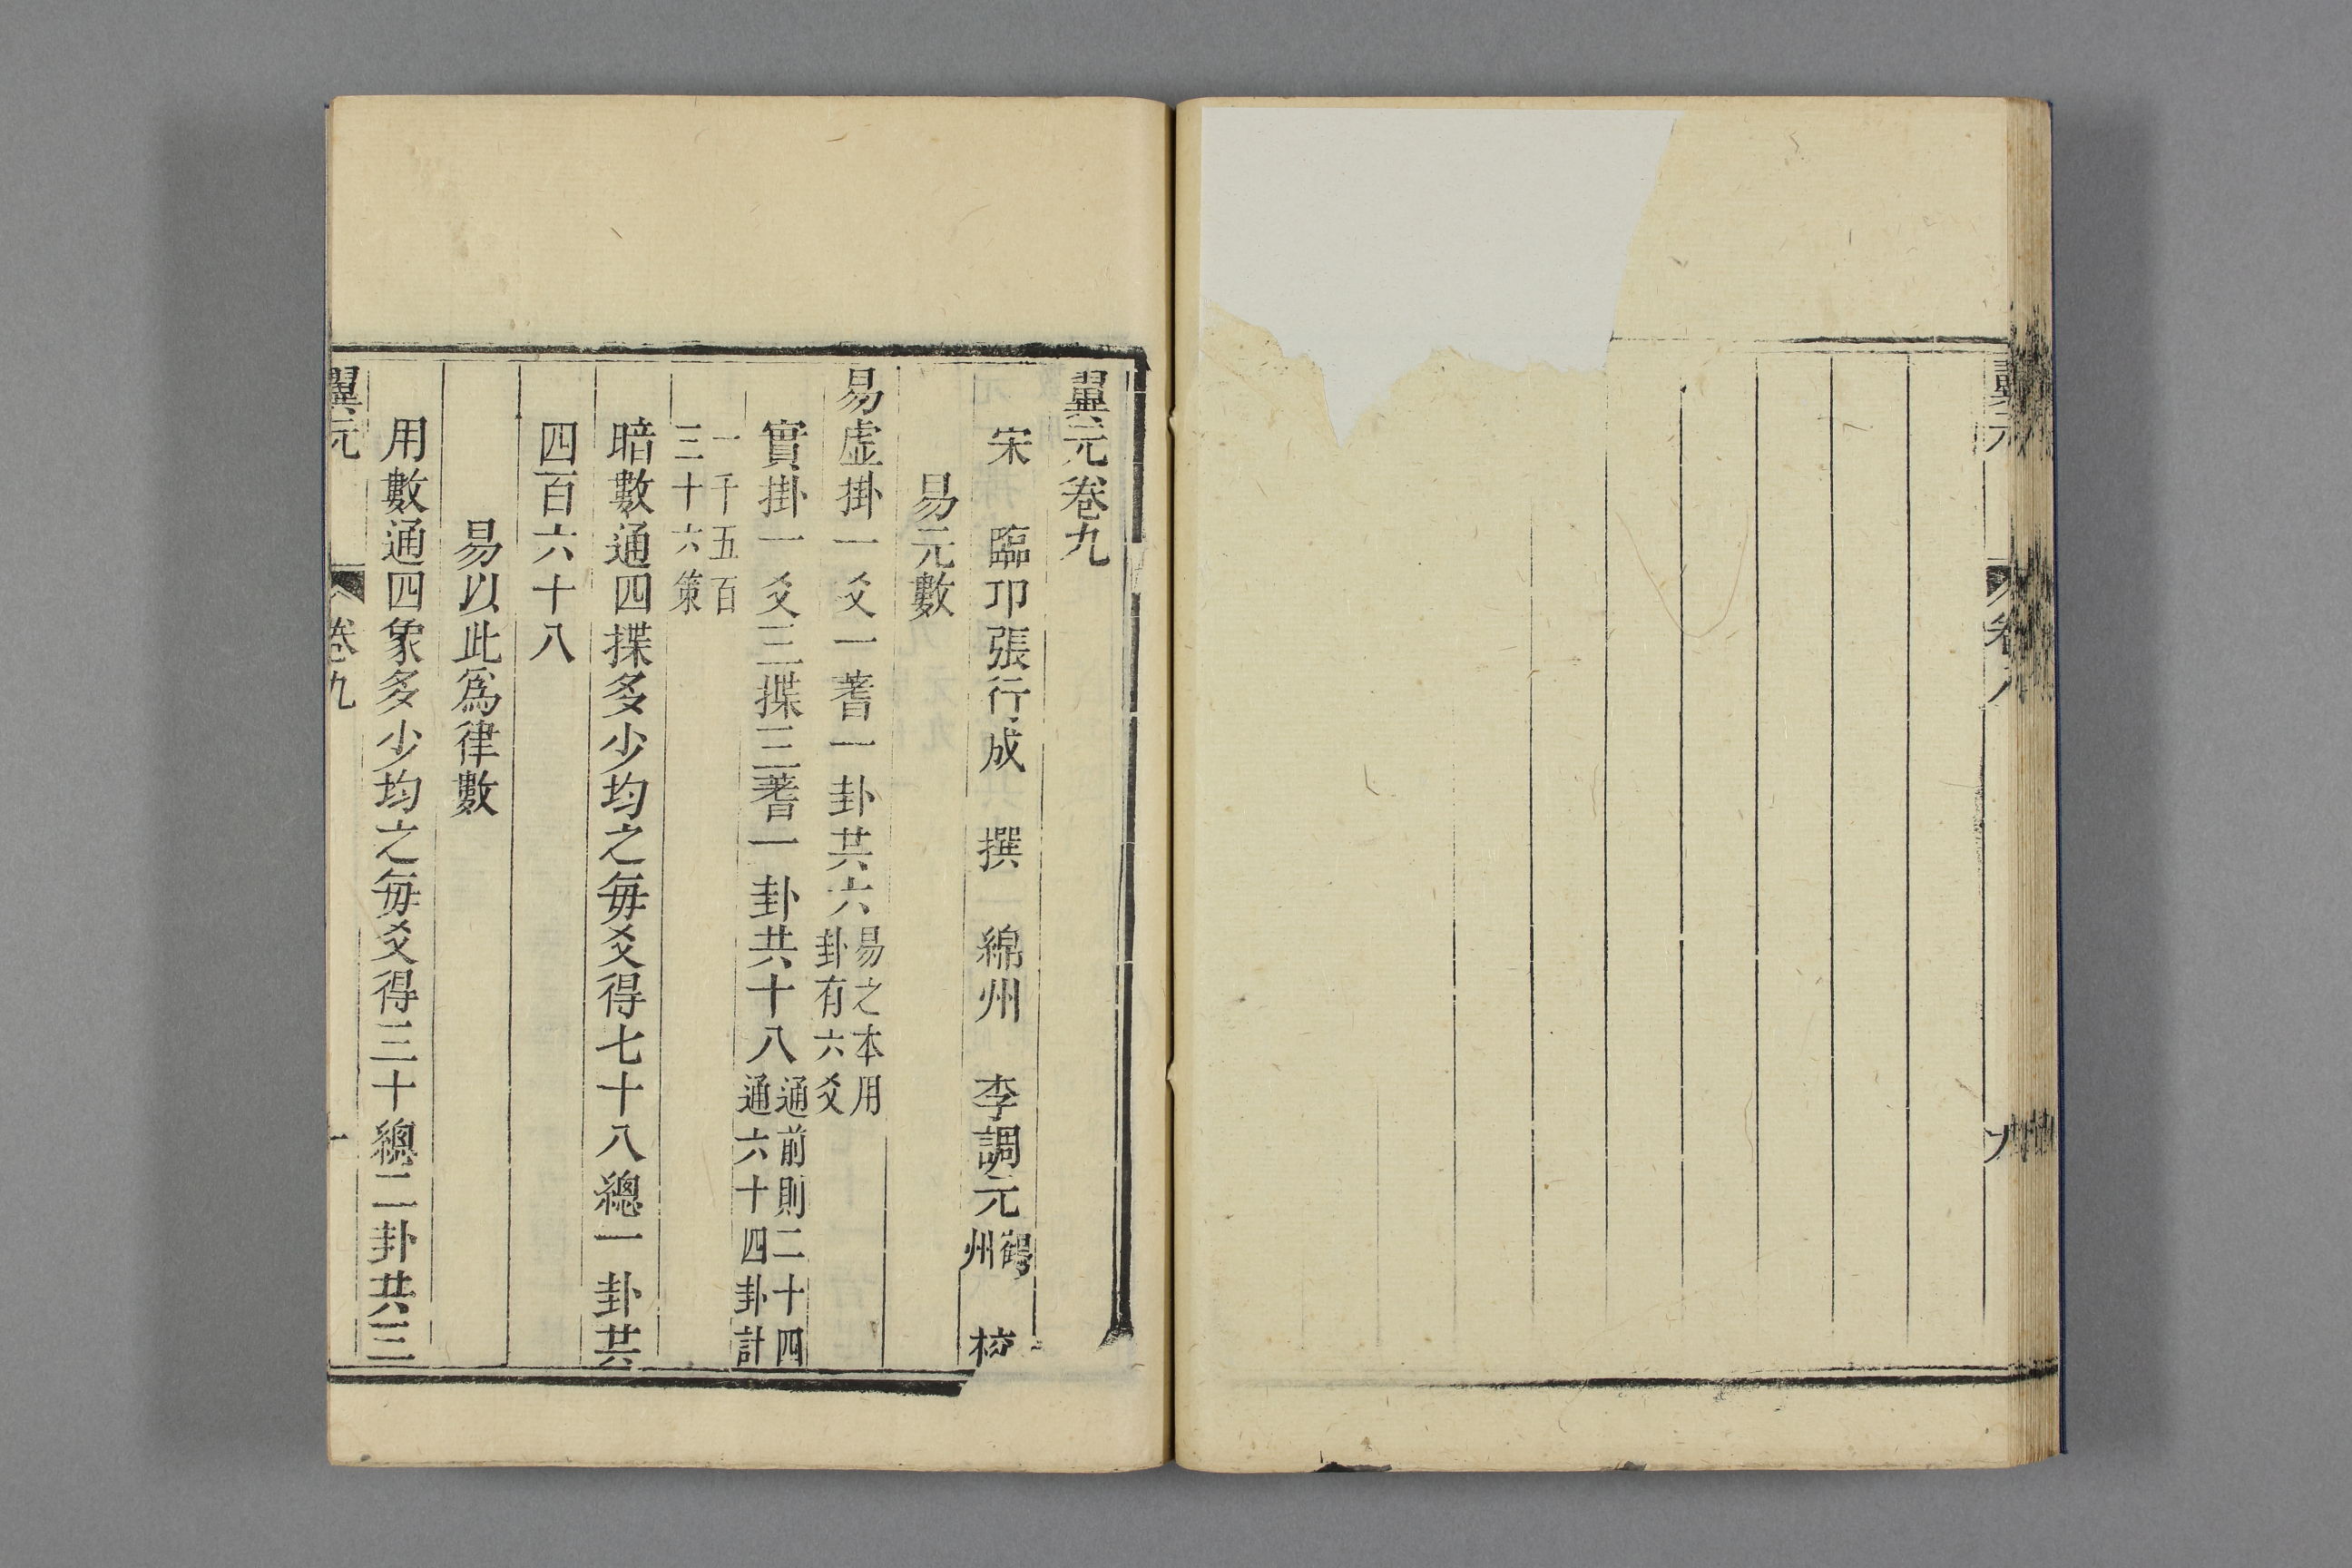 翼元 卷八 九
翼元卷九
宋 臨邛張行成 撰 綿州 李調元 鶴州 校
易元數
易虛掛一爻一蓍一卦共六易之本用卦有六爻
實掛一爻三揲三蓍一卦共十八通前則二十四通六十四卦計
一千五百三十六策
暗數通四揲多少均之每爻得七十八總一卦共
四百六十八
易以此爲律數
用數通四象多少均之每爻得三十總二卦共三
翼元 卷九 一